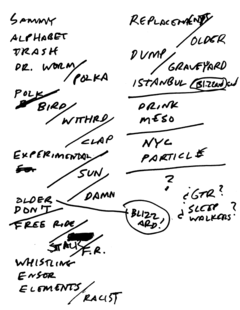 SAMMY
ALPHABET
TRASH
DR. WORM
POLKA
POLK
BIRD
WITHRD
CLAP
EXPERIMENTAL
SUN
DAMN
OLDER
DON'T
FREE RIDE
F.R.
WHISTLING
ENSOR
ELEMENTS
RACIST
REPLACEMENTS
OLDER
DUMP
GRAVEYARD
ISTANBUL
DRINK
MESO
NYC
PARTICLE
?
BLIZZ
ARD?
¿GTR?
¿SLEEP
WALKERS?